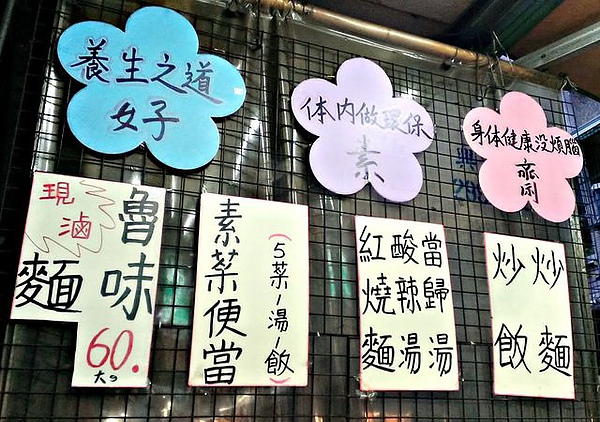 養生之道
女子
体内做環保
素
身体健康没煩腦
魯味
現滷
麵
60.
素菜便當
(5菜一湯一飯)
當歸湯
酸辣湯
紅燒麵
炒麵
炒飯